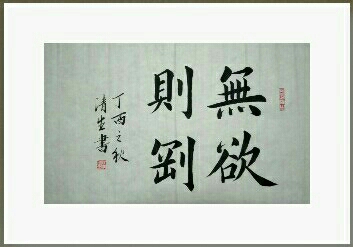 無欲
則剛
丁酉之秋
清生書